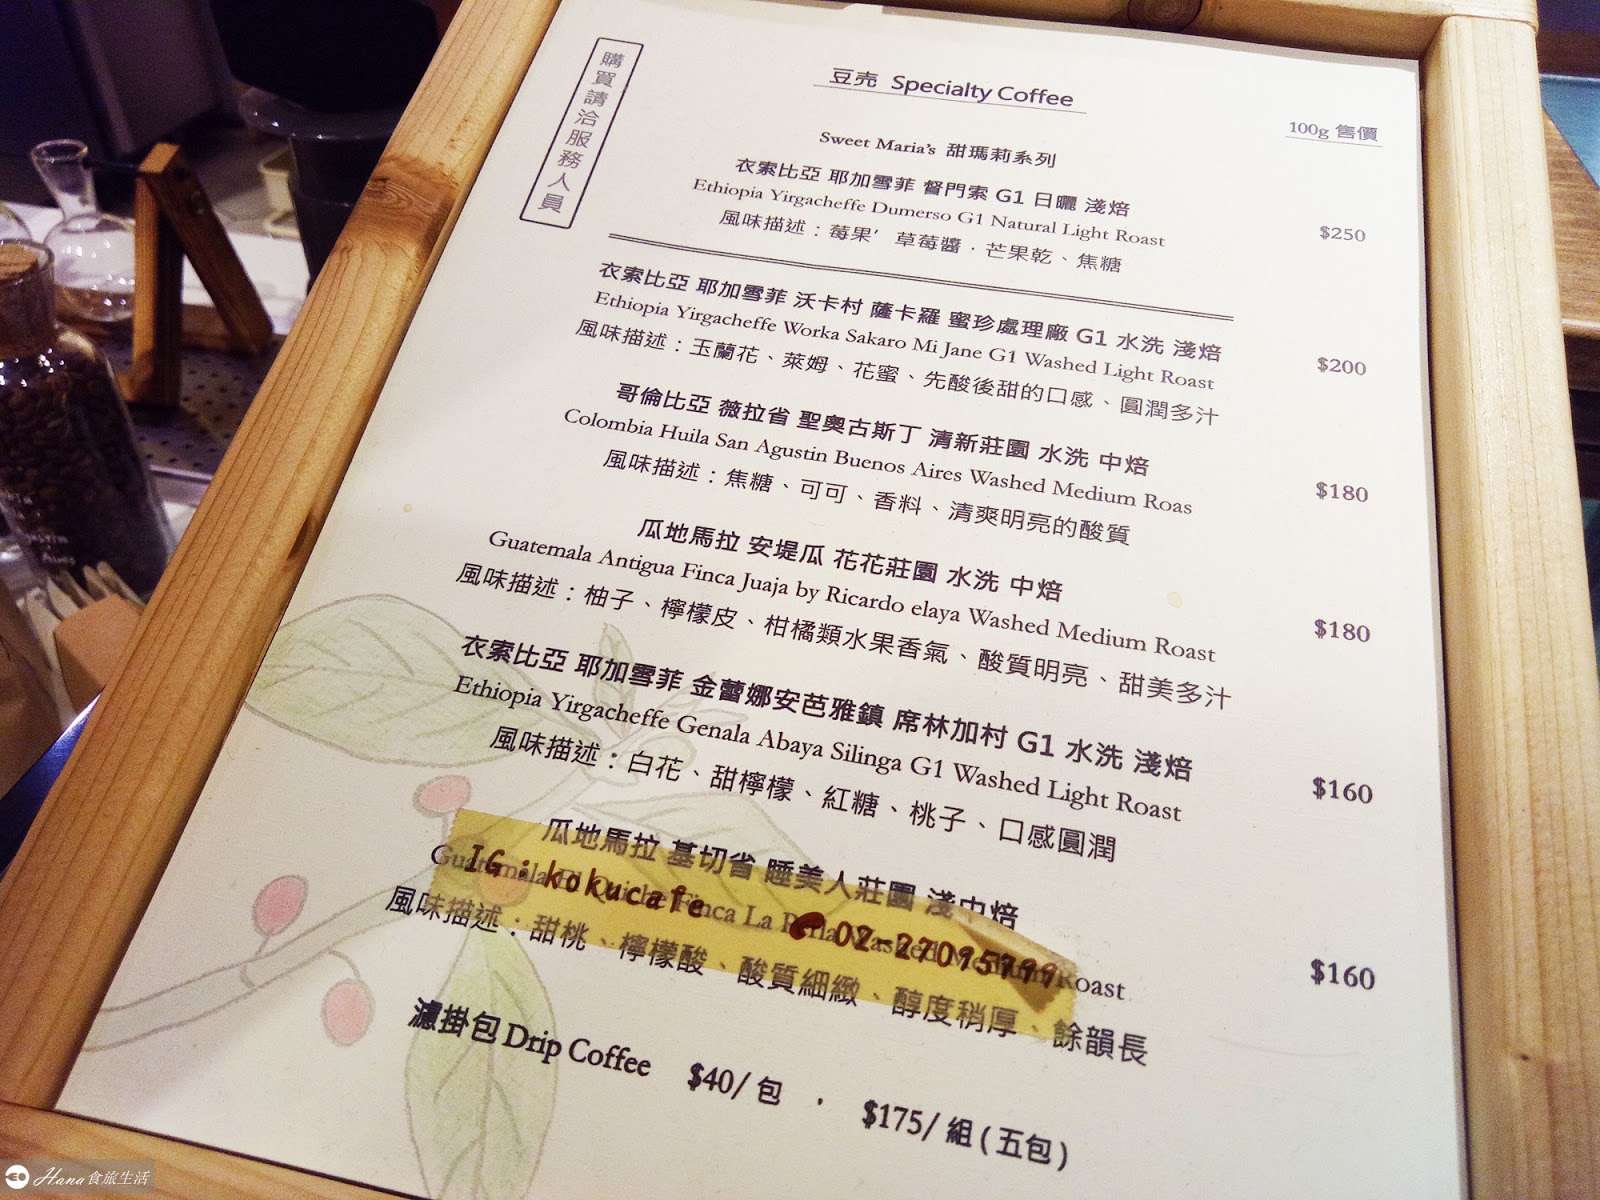 購買請洽服務人員
豆売 Specialty Coffee
100g 售價
Sweet Maria's 甜瑪莉系列
衣索比亞 耶加雪菲 督門索 G1 日曬 淺焙
Ethiopia Yirgacheffe Dumerso G1 Natural Light Roast $250
風味描述：莓果’草莓醬．芒果乾、焦糖
衣索比亞 耶加雪菲 沃卡村 薩卡羅 蜜珍處理廠 G1 水洗 淺焙
Ethiopia Yirgacheffe Worka Sakaro Mi Jane G1 Washed Light Roast $200
風味描述：玉蘭花、萊姆、花蜜、先酸後甜的口感、圓潤多汁
哥倫比亞 薇拉省 聖奧古斯丁 清新莊園 水洗 中焙
Colombia Huila San Agustin Buenos Aires Washed Medium Roas $180
風味描述：焦糖、可可、香料、清爽明亮的酸質
瓜地馬拉 安堤瓜 花花莊園 水洗 中焙
Guatemala Antigua Finca Juaja by Ricardo elaya Washed Medium Roast $180
風味描述：柚子、檸檬皮、柑橘類水果香氣、酸質明亮、甜美多汁
衣索比亞 耶加雪菲 金蕾娜安芭雅鎮 席林加村 G1 水洗 淺焙
Ethiopia Yirgacheffe Genala Abaya Silinga G1 Washed Light Roast $160
風味描述：白花、甜檸檬、紅糖、桃子、口感圓潤
瓜地馬拉 基切省 睡美人莊園 淺中焙
Guatemala El Quiche Finca La Perla Washed Medium Roast $160
IG：kokucafe 02-27095799
風味描述：甜桃、檸檬酸、酸質細緻、醇度稍厚、餘韻長
濾掛包 Drip Coffee $40/包 ． $175/組(五包)
Hana食旅生活